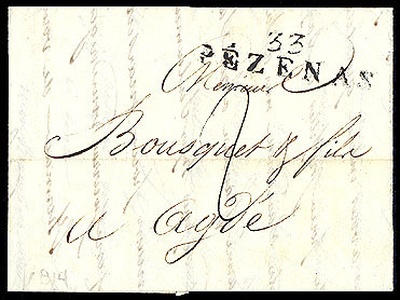 33
PEZENAS
Messieurs
2
Bousquet & fils
a Agde